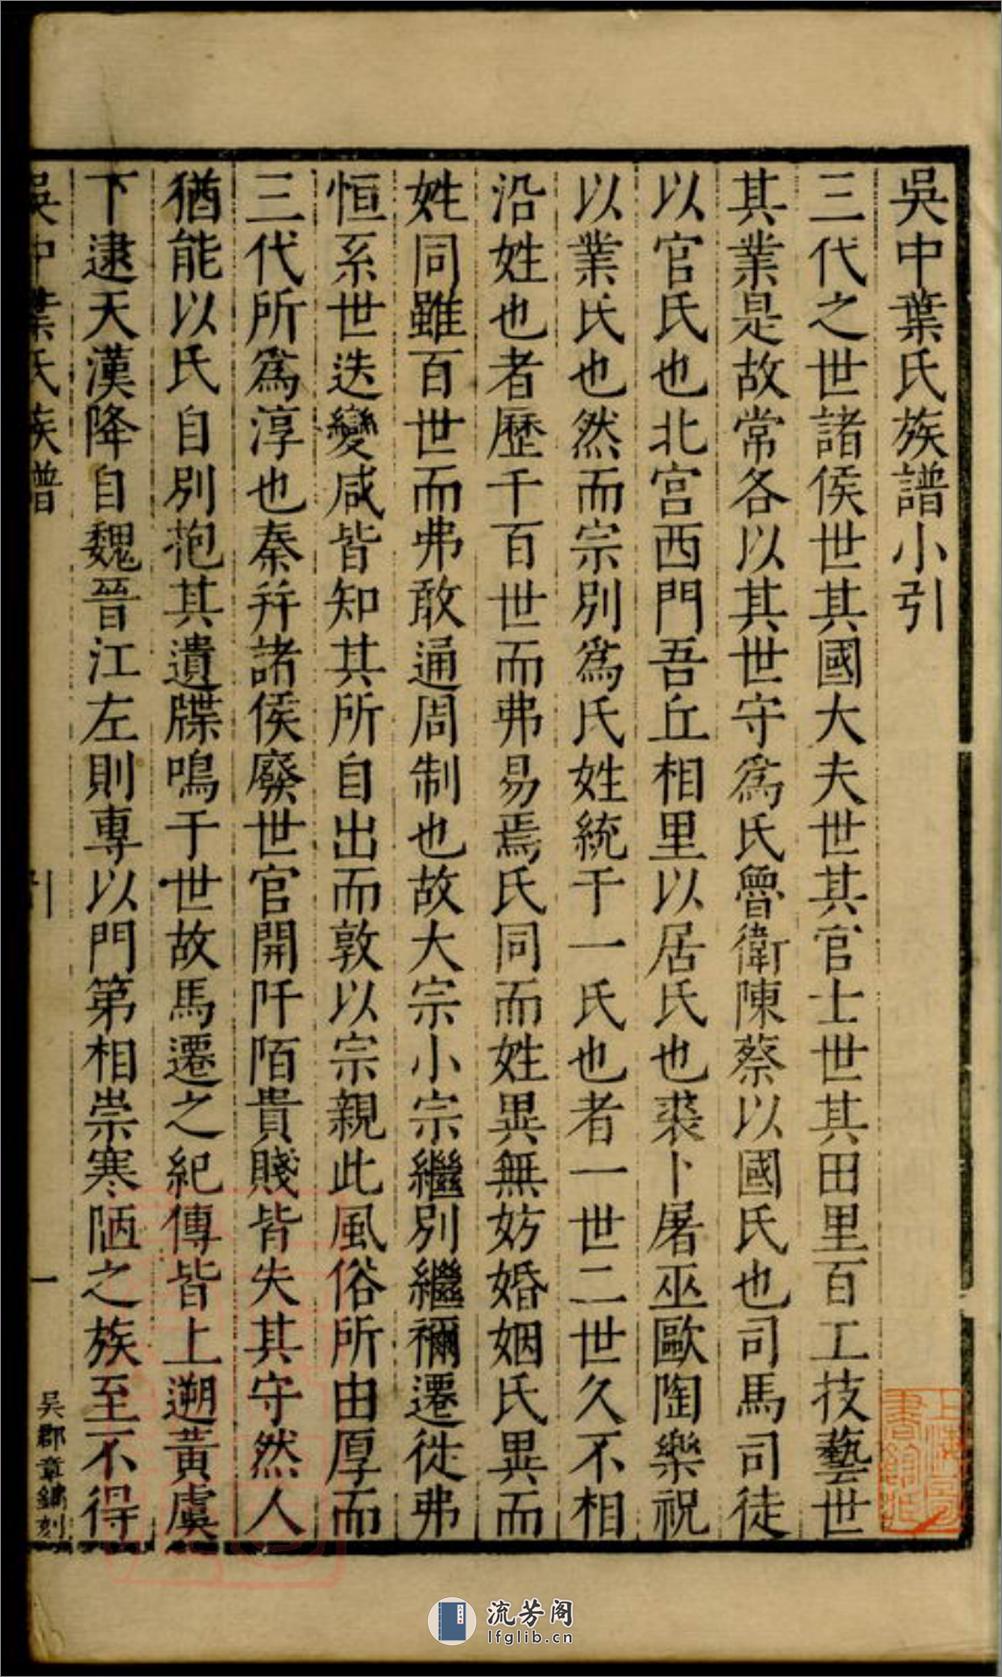 吳中葉氏族譜小引
三代之世諸侯世其國大夫世其官士世其田里百工技藝世
其業是故常各以其世守爲氏魯衛陳蔡以國氏也司馬司徒
以官氏也北宮西門吾丘相里以居氏也裘卜屠巫歐陶樂祝
以業氏也然而宗別爲氏姓統于一氏也者一世二世久不相
沿姓也者歷千百世而弗易焉氏同而姓異無妨婚姻氏異而
姓同雖百世而弗敢通周制也故大宗小宗繼別繼禰遷徙弗
恒系世迭變咸皆知其所自出而敦以宗親此風俗所由厚而
三代所爲淳也秦并諸侯廢世官開阡陌貴賤皆失其守然人
猶能以氏自別抱其遺牒鳴于世故馬遷之紀傳皆上遡黃虞
下逮天漢降自魏晉江左則專以門第相崇寒陋之族至不得
吳中葉氏族譜
引
一
吳郡章鏞刻
流芳阁
lfglib.cn